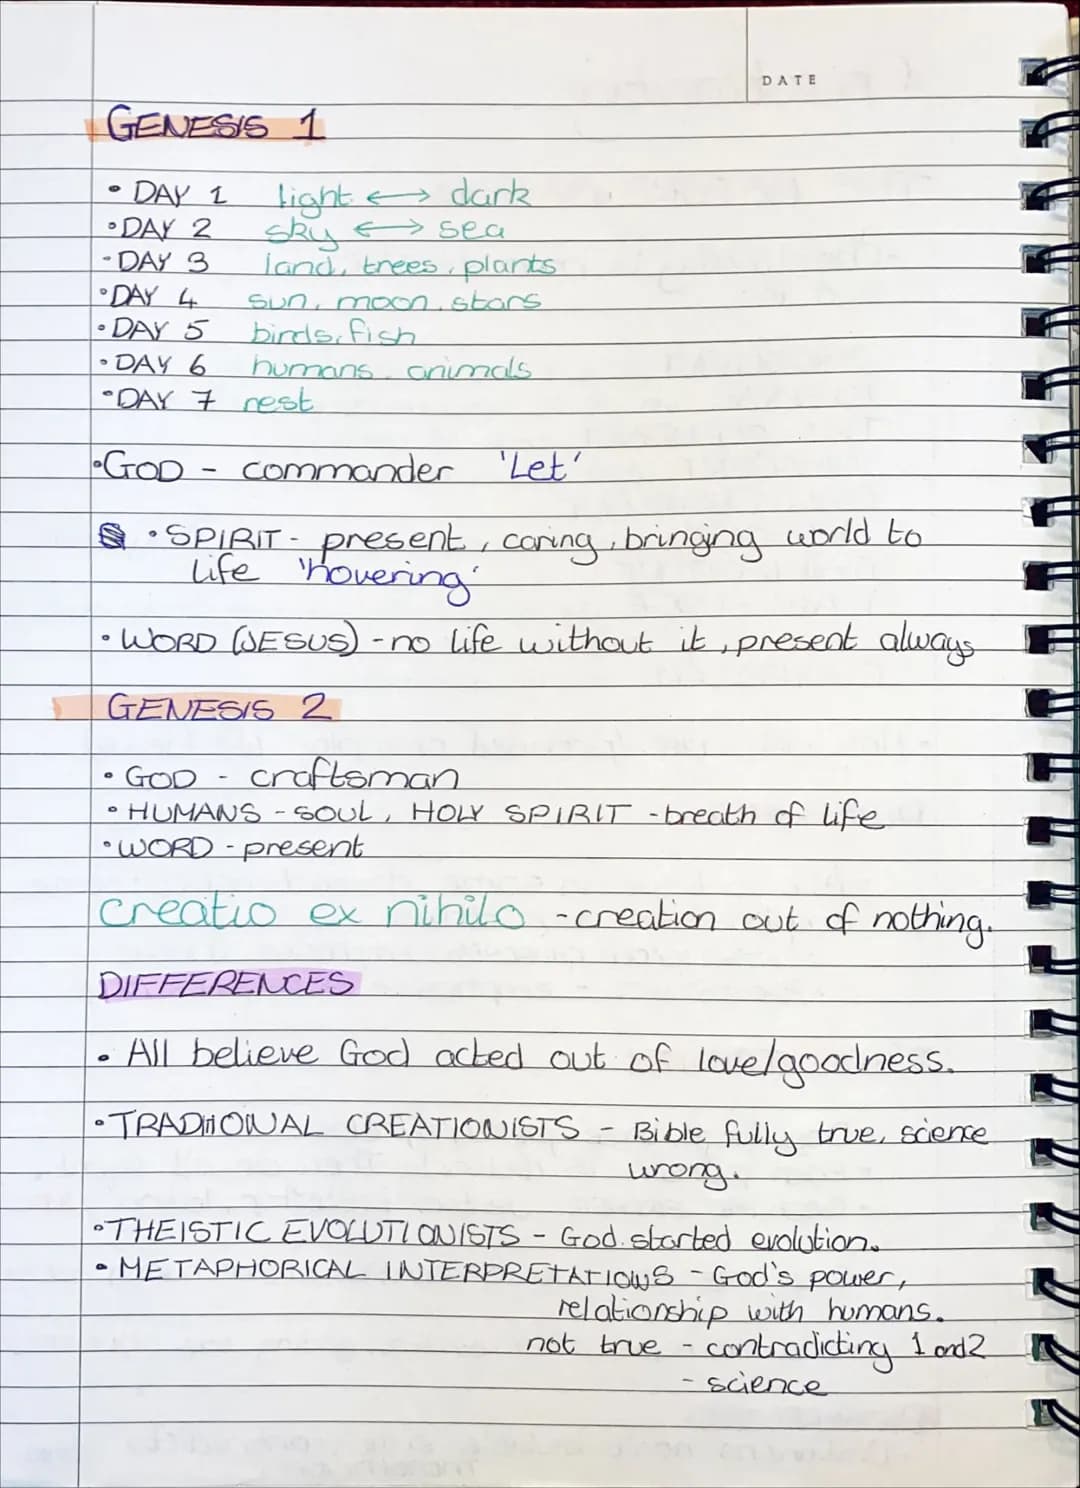 DATE
GENESIS 1
• DAY 1 light ↔ dark
• DAY 2 sky ↔ sea
- DAY 3 land, trees, plants
• DAY 4 sun, moon, stars
• DAY 5 birds, fish
• DAY 6 humans, animals
• DAY 7 rest
• GOD - commander 'Let'
• SPIRIT - present, caring, bringing world to
life 'hovering'
• WORD (JESUS) - no life without it, present always
GENESIS 2
• GOD - craftsman
• HUMANS - SOUL, HOLY SPIRIT - breath of life
• WORD - present
creatio ex nihilo - creation out of nothing.
DIFFERENCES
• All believe God acted out of love/goodness.
• TRADITIONAL CREATIONISTS - Bible fully true, science
wrong.
• THEISTIC EVOLUTIONISTS - God started evolution.
• METAPHORICAL INTERPRETATIONS - God's power,
relationship with humans.
not true - contradicting 1 and 2
- science